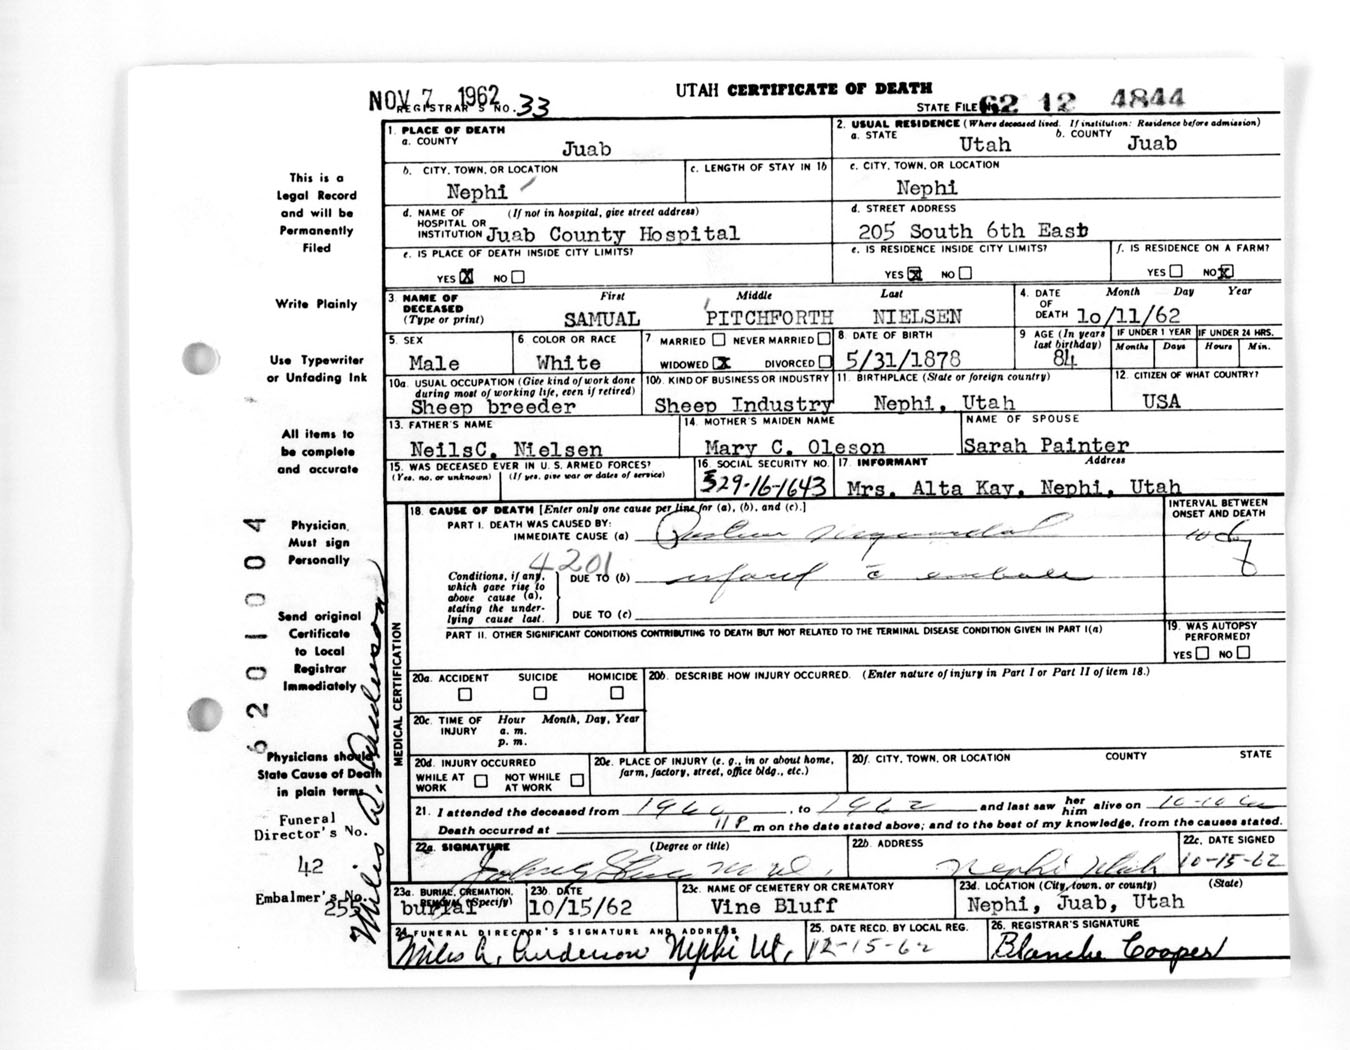 NOV 7 1962
UTAH CERTIFICATE OF DEATH
REGISTRAR'S NO. 33
STATE FILE NO. 62 12 4844
1. PLACE OF DEATH
a. COUNTY
Juab
2. USUAL RESIDENCE (Where deceased lived. If institution: Residence before admission)
a. STATE
Utah
b. COUNTY
Juab
b. CITY, TOWN, OR LOCATION
Nephi
c. LENGTH OF STAY IN 1b
c. CITY, TOWN, OR LOCATION
Nephi
d. NAME OF HOSPITAL OR INSTITUTION (If not in hospital, give street address)
Juab County Hospital
d. STREET ADDRESS
205 South 6th East
e. IS PLACE OF DEATH INSIDE CITY LIMITS?
YES X NO
e. IS RESIDENCE INSIDE CITY LIMITS?
YES X NO
f. IS RESIDENCE ON A FARM?
YES NO X
3. NAME OF DECEASED (Type or print)
First Middle Last
SAMUAL PITCHFORTH NIELSEN
4. DATE OF DEATH
Month Day Year
10/11/62
5. SEX
Male
6. COLOR OR RACE
White
7. MARRIED NEVER MARRIED
WIDOWED X DIVORCED
8. DATE OF BIRTH
5/31/1878
9. AGE (In years last birthday)
84
IF UNDER 1 YEAR
Months Days
IF UNDER 24 HRS.
Hours Min.
10a. USUAL OCCUPATION (Give kind of work done during most of working life, even if retired)
Sheep breeder
10b. KIND OF BUSINESS OR INDUSTRY
Sheep Industry
11. BIRTHPLACE (State or foreign country)
Nephi, Utah
12. CITIZEN OF WHAT COUNTRY?
USA
13. FATHER'S NAME
NeilsC. Nielsen
14. MOTHER'S MAIDEN NAME
Mary C. Oleson
NAME OF SPOUSE
Sarah Painter
15. WAS DECEASED EVER IN U. S. ARMED FORCES?
(Yes, no, or unknown) (If yes, give war or dates of service)
16. SOCIAL SECURITY NO.
529-16-1643
17. INFORMANT Address
Mrs. Alta Kay, Nephi, Utah
MEDICAL CERTIFICATION
18. CAUSE OF DEATH [Enter only one cause per line for (a), (b), and (c).]
INTERVAL BETWEEN ONSET AND DEATH
PART I. DEATH WAS CAUSED BY:
IMMEDIATE CAUSE (a)
4201
Conditions, if any, which gave rise to above cause (a), stating the underlying cause last.
DUE TO (b)
DUE TO (c)
PART II. OTHER SIGNIFICANT CONDITIONS CONTRIBUTING TO DEATH BUT NOT RELATED TO THE TERMINAL DISEASE CONDITION GIVEN IN PART I(a)
19. WAS AUTOPSY PERFORMED?
YES NO
20a. ACCIDENT SUICIDE HOMICIDE
20b. DESCRIBE HOW INJURY OCCURRED. (Enter nature of injury in Part I or Part II of item 18.)
20c. TIME OF INJURY
Hour Month, Day, Year
a. m.
p. m.
20d. INJURY OCCURRED
WHILE AT WORK NOT WHILE AT WORK
20e. PLACE OF INJURY (e. g., in or about home, farm, factory, street, office bldg., etc.)
20f. CITY, TOWN, OR LOCATION COUNTY STATE
21. I attended the deceased from 1960, to 1962 and last saw her him alive on 10-10-62
Death occurred at 11 P m on the date stated above; and to the best of my knowledge, from the causes stated.
22a. SIGNATURE (Degree or title)
M.D.
22b. ADDRESS
Nephi Utah
22c. DATE SIGNED
10-15-62
23a. BURIAL, CREMATION, REMOVAL (Specify)
burial
23b. DATE
10/15/62
23c. NAME OF CEMETERY OR CREMATORY
Vine Bluff
23d. LOCATION (City, town, or county) (State)
Nephi, Juab, Utah
24. FUNERAL DIRECTOR'S SIGNATURE AND ADDRESS
Miles A. Anderson Nephi Ut.
25. DATE RECD. BY LOCAL REG.
12-15-62
26. REGISTRAR'S SIGNATURE
Blanche Cooper
This is a
Legal Record
and will be
Permanently
Filed
Write Plainly
Use Typewriter
or Unfading Ink
All items to
be complete
and accurate
Physician,
Must sign
Personally
Send original
Certificate
to Local
Registrar
Immediately
Physicians should
State Cause of Death
in plain terms
Funeral
Director's No.
42
Embalmer's No.
255
6201004
Miles A. Anderson